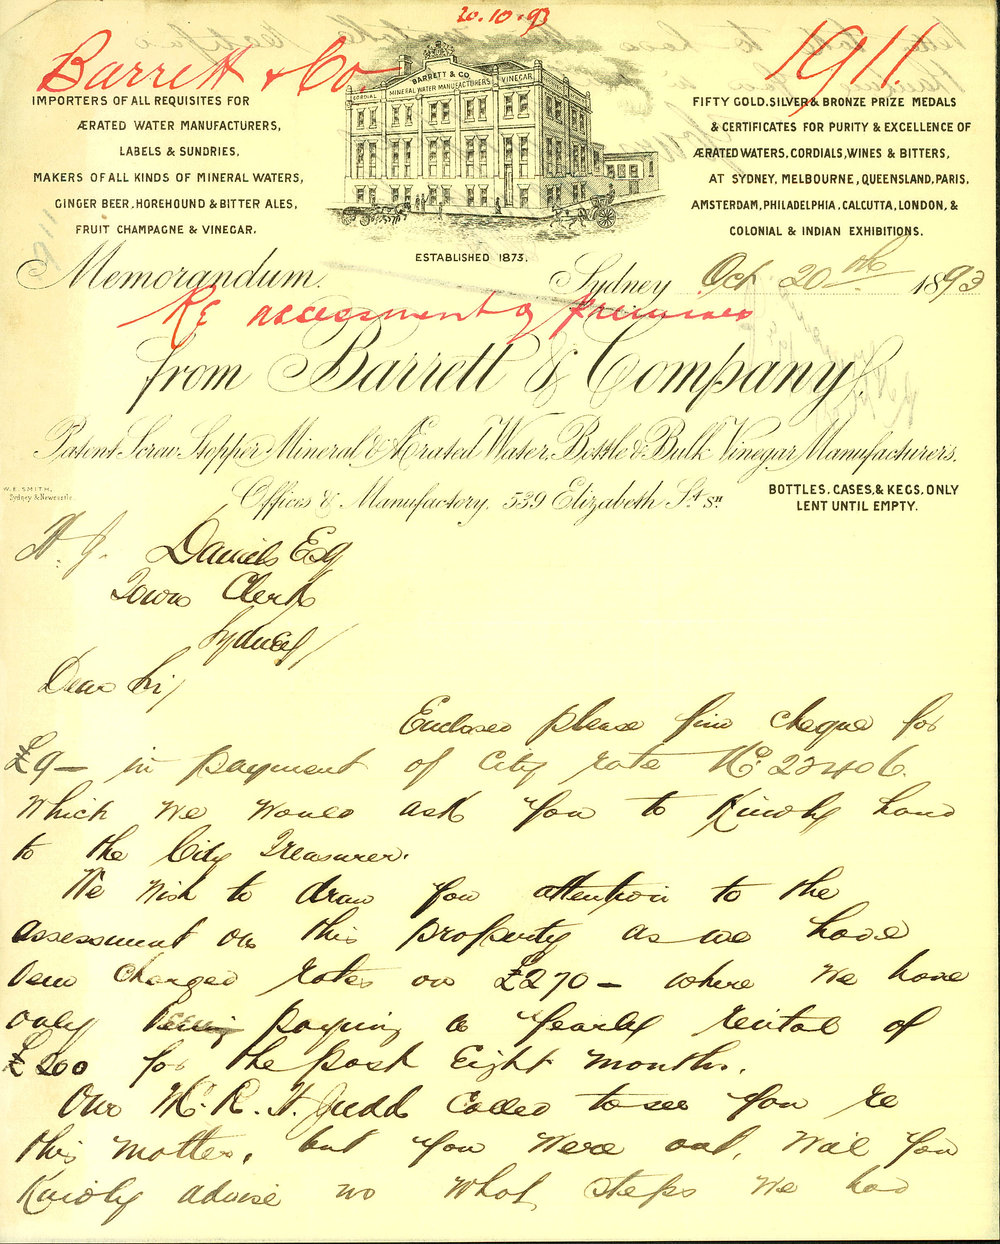 20.10.93
Barrett & Co.
1911.
IMPORTERS OF ALL REQUISITES FOR
ÆRATED WATER MANUFACTURERS,
LABELS & SUNDRIES,
MAKERS OF ALL KINDS OF MINERAL WATERS,
GINGER BEER, HOREHOUND & BITTER ALES,
FRUIT CHAMPAGNE & VINEGAR.
BARRETT & CO.
CORDIAL MINERAL WATER MANUFACTURERS VINEGAR
ESTABLISHED 1873.
FIFTY GOLD, SILVER & BRONZE PRIZE MEDALS
& CERTIFICATES FOR PURITY & EXCELLENCE OF
ÆRATED WATERS, CORDIALS, WINES & BITTERS,
AT SYDNEY, MELBOURNE, QUEENSLAND, PARIS,
AMSTERDAM, PHILADELPHIA, CALCUTTA, LONDON, &
COLONIAL & INDIAN EXHIBITIONS.
Memorandum. Sydney Oct 20th 1893
Re assessment of premises
from Barrett & Company,
Patent Screw Stopper Mineral & Ærated Water, Bottle & Bulk Vinegar Manufacturers.
W.E. SMITH,
Sydney & Newcastle.
Offices & Manufactory, 539 Elizabeth St. Sn
BOTTLES, CASES, & KEGS, ONLY
LENT UNTIL EMPTY.
H. J. Daniels Esq
Town Clerk
Sydney
Dear Sir
Enclosed please find cheque for
£9 – in payment of City rate No. 23406.
Which we would ask you to Kindly hand
to the City Treasurer.
We wish to draw your attention to the
assessment on this property as we have
been charged rates on £270 – where we have
only been paying a yearly rental of
£200 for the past Eight months.
Our Mr. R. H. Judd Called to see you re
this matter, but you were out, Will you
Kindly advise us what steps we had